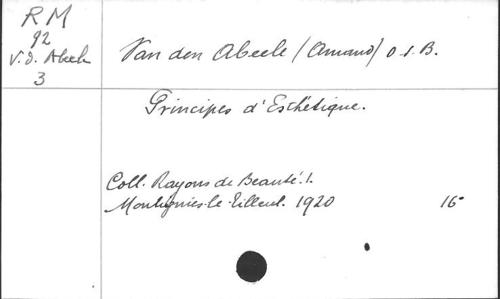 RM
92
V.d. Abeele
3
Van den Abeele (Amand) O.S.B.
Principes d'Esthétique.
Coll. Rayons de Beauté. 1.
Montignies-le-Tilleul. 1920 16°